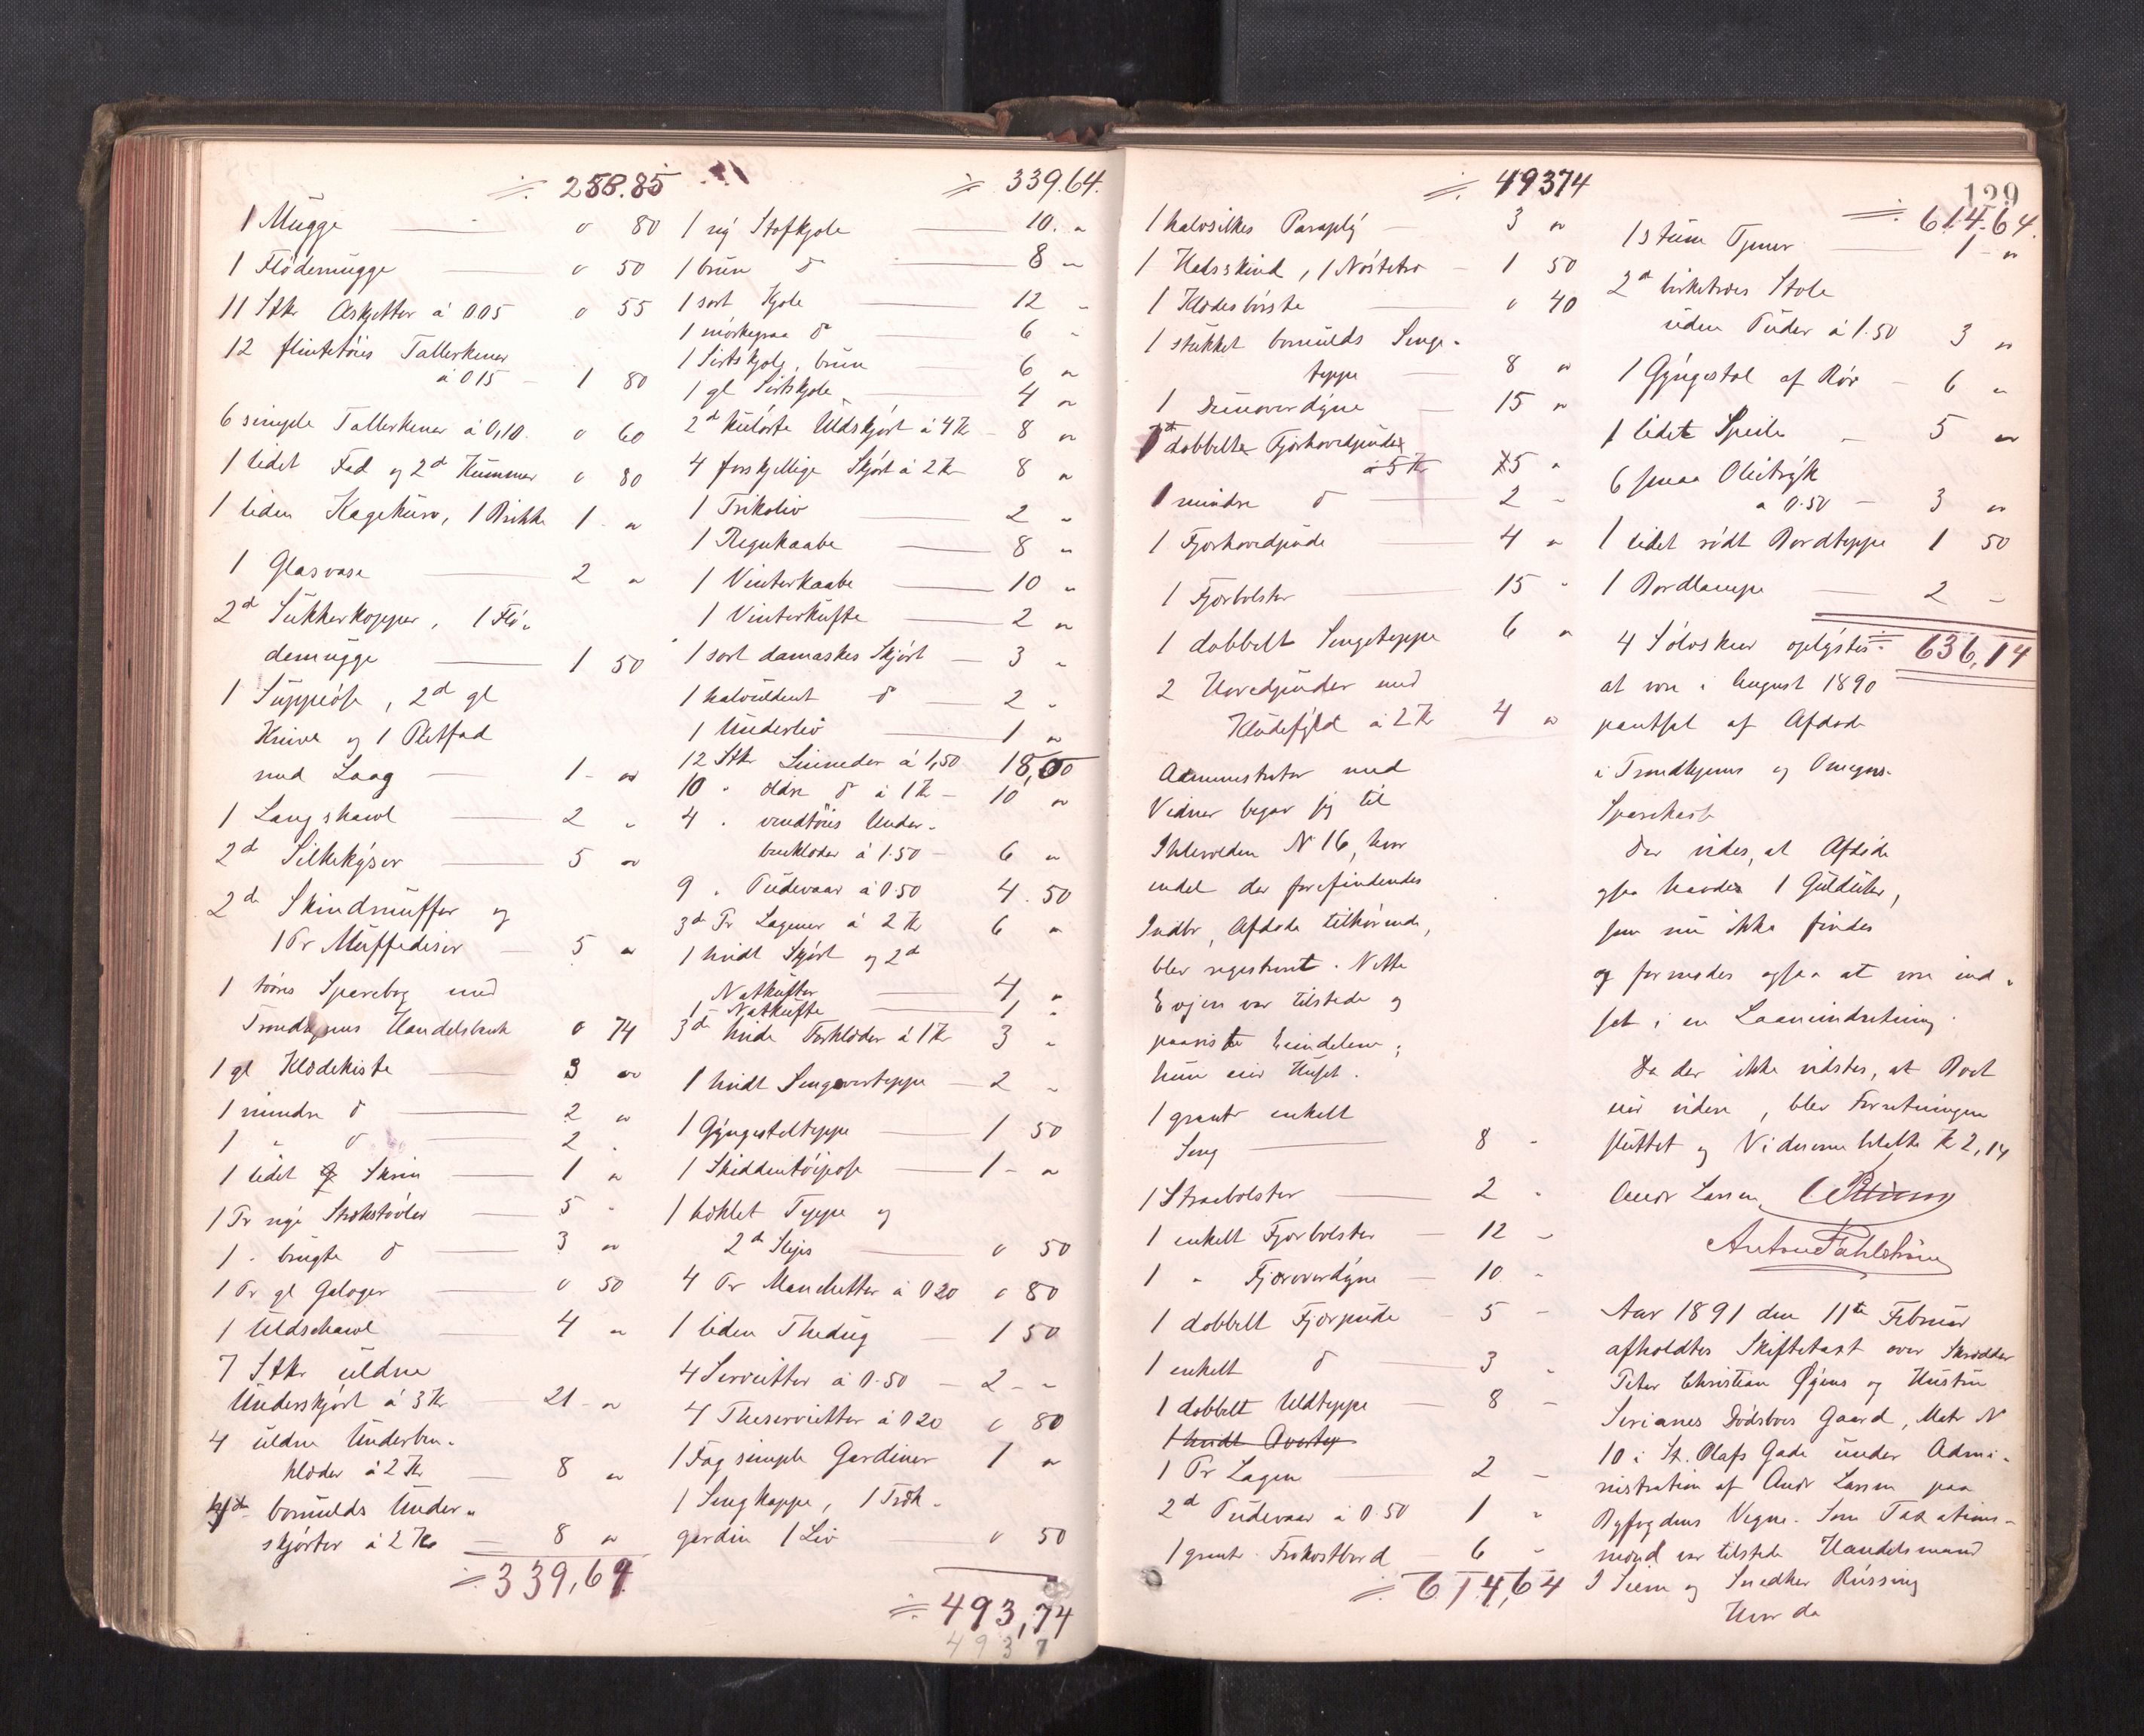 ⸓ 258.85
1 Mugge — " 80
1 Flödemugge — " 50
11 Stkr Askjetter à 005 " 55
12 flintetöies Tallerkener
à 015 - 1 80
6 simple Tallerkener à 0,10. " 60
1 lidet Fad og 2d Kummer " 80
1 liden Kagekurv, 1 Brikke 1 - "
1 Glasvase — 2 "
2d Sukkerkopper, 1 Flö-
demugge — 1 50
1 Suppeöse, 2d gl
Knive og 1 Pletfad
med Laag — 1 - "
1 Langshawl — 2 "
2d Silkekyser — 5 "
2de Skindmuffer og
1 Pr Muffediser — 5 "
1 Sparebog med
Trondhjems Handelsbank " 74
1 gl Klædekiste — 3 "
1 mindre do — 2 "
1 " do — 2 "
1 lidet Skrin — 1 "
1 Pr nye Strikstövler — 5 "
1 " brugte do — 3 "
1 Pr gl Galoger — " 50
1 Uldschawl — 4 "
7 Stkr uldne
Underskjört à 3 Kr — 21 - "
4 uldne Underben-
klæder à 2 Kr — 8 "
4de bomulds Under-
skjörter à 2 Kr — 8 "
⸓ 339,64
⸓ 339.64.
1 ny Stofkjole — 10. "
1 brun do — 8 "
1 sort Kjole — 12 "
1 mörkegraa do — 6 "
1 Sirtskjole, brun — 6 "
1 gl Sirtskjole — 4 "
2d kulörte Uldskjört à 4 Kr - 8 "
4 forskjellige Skjört à 2 Kr 8 "
1 Trikoliv — 2 "
1 Regnkaabe — 8 "
1 Vinterkaabe — 10 "
1 Vinterkufte — 2 "
1 sort damaskes Skjört — 3 "
1 halvuldent do — 2 "
1 Underliv — 1 "
12 Stkr Linneder à 1,50 18,00
10 " ældre do à 1 Kr - 10 "
4 " Under-
benklæder à 1.50 - 6 "
9 " Pudevaar à 0.50 4.50
3de Pr Lagener à 2 Kr 6 "
1 hvidt Skjört og 2de
Natkufter — 4 "
1 Natkufte — 1 "
3de hvide Forklæder à 1 Kr 3 "
1 hvidt Sengovertæppe — 2 "
1 Gyngestoltæppe — 1 50
1 Skiddentöipose — 1 - "
1 hæklet Tæppe og
2de Slips — " 50
4 Pr Manchetter à 020 " 80
1 liden Thedug — 1 50
4 Servietter à 0.50 - 2 - "
4 Theservietter à 020 " 80
1 Fag simple Gardiner 1 "
1 Sengkappe, 1 Træk-
gardin 1 Liv " 50
⸓ 493,74
4937
⸓ 49374
1 halvsilkes Paraply — 3 "
1 Halsskind, 1 Nöstetræ - 1 50
1 Klædesbörste — " 40
1 stukket bomulds Senge-
tæppe — 8 "
1 Dunoverdyne — 15 "
1 dobbelt Fjærhovedpude
à 5 Kr 5 "
1 mindre do — 2 "
1 Fjærhovedpude — 4 "
1 Fjærbolster — 15 "
1 dobbelt Sengetæppe 6 "
2 Hovedpuder med
Kludefyld à 2 Kr 4 "
Administrator med
Vidner begav sig til
Ihlevolden No 16, hvor
endel der forefindendes
Indbo, Afdøde tilhörende,
blev registreret. Nette
Evjen var tilstede og
paaviste Eiendelene;
hun eier Huset.
1 grønt enkelt
Seng — 8 "
1 Straabolster — 2 "
1 enkelt Fjærbolster — 12 "
1 " Fjæroverdyne — 10 "
1 dobbelt Fjærpude - 5 "
1 enkelt do — 3 "
1 dobbelt Uldtæppe — 8 "
1 hvidt Overtæp
1 Pr Lagen — 2 "
2d Pudevaar à 0.50 1 "
1 grønt Frokostbord — 6 "
⸓ 614,64
129
⸓ 614.64.
1 stum Tjener — 1 - "
2de birketræes Stole
uden Puder à 1.50 3 "
1 Gyngestol af Rör - 6 "
1 lidet Speile - 5 "
6 smaa Olietryk
à 0.50 — 3 "
1 lidet rödt Bordtæppe 1 50
1 Bordlampe — 2 "
⸓ 636,14
4 Sölvskeer oplystes
at være i August 1890
pantsat af Afdøde
i Trondhjems og Omegns
Sparekasse
Der vides, at Afdøde
ogsaa havde 1 Guldur,
som nu ikke findes
og formodes ogsaa at være ind-
sat i en Laaneindretning.
Da der ikke vidstes, at Boet
eier videre, blev Forretningen
sluttet og Vidnerne betalte Kr 2,14
Andr Larsen
Anton Dahlström
Aar 1891 den 11te Februar
afholdtes Skiftetaxt over Skrædder
Peter Christian Öyens og Hustru
Serianes Dödsboes Gaard, Matr No
10 i St. Olafs Gade under Admi-
nistration af Andr Larsen paa
Byfogdens Vegne. Som Taxations-
mænd var tilstede Handelsmand
J Siem og Snedker Russing
Hvor da